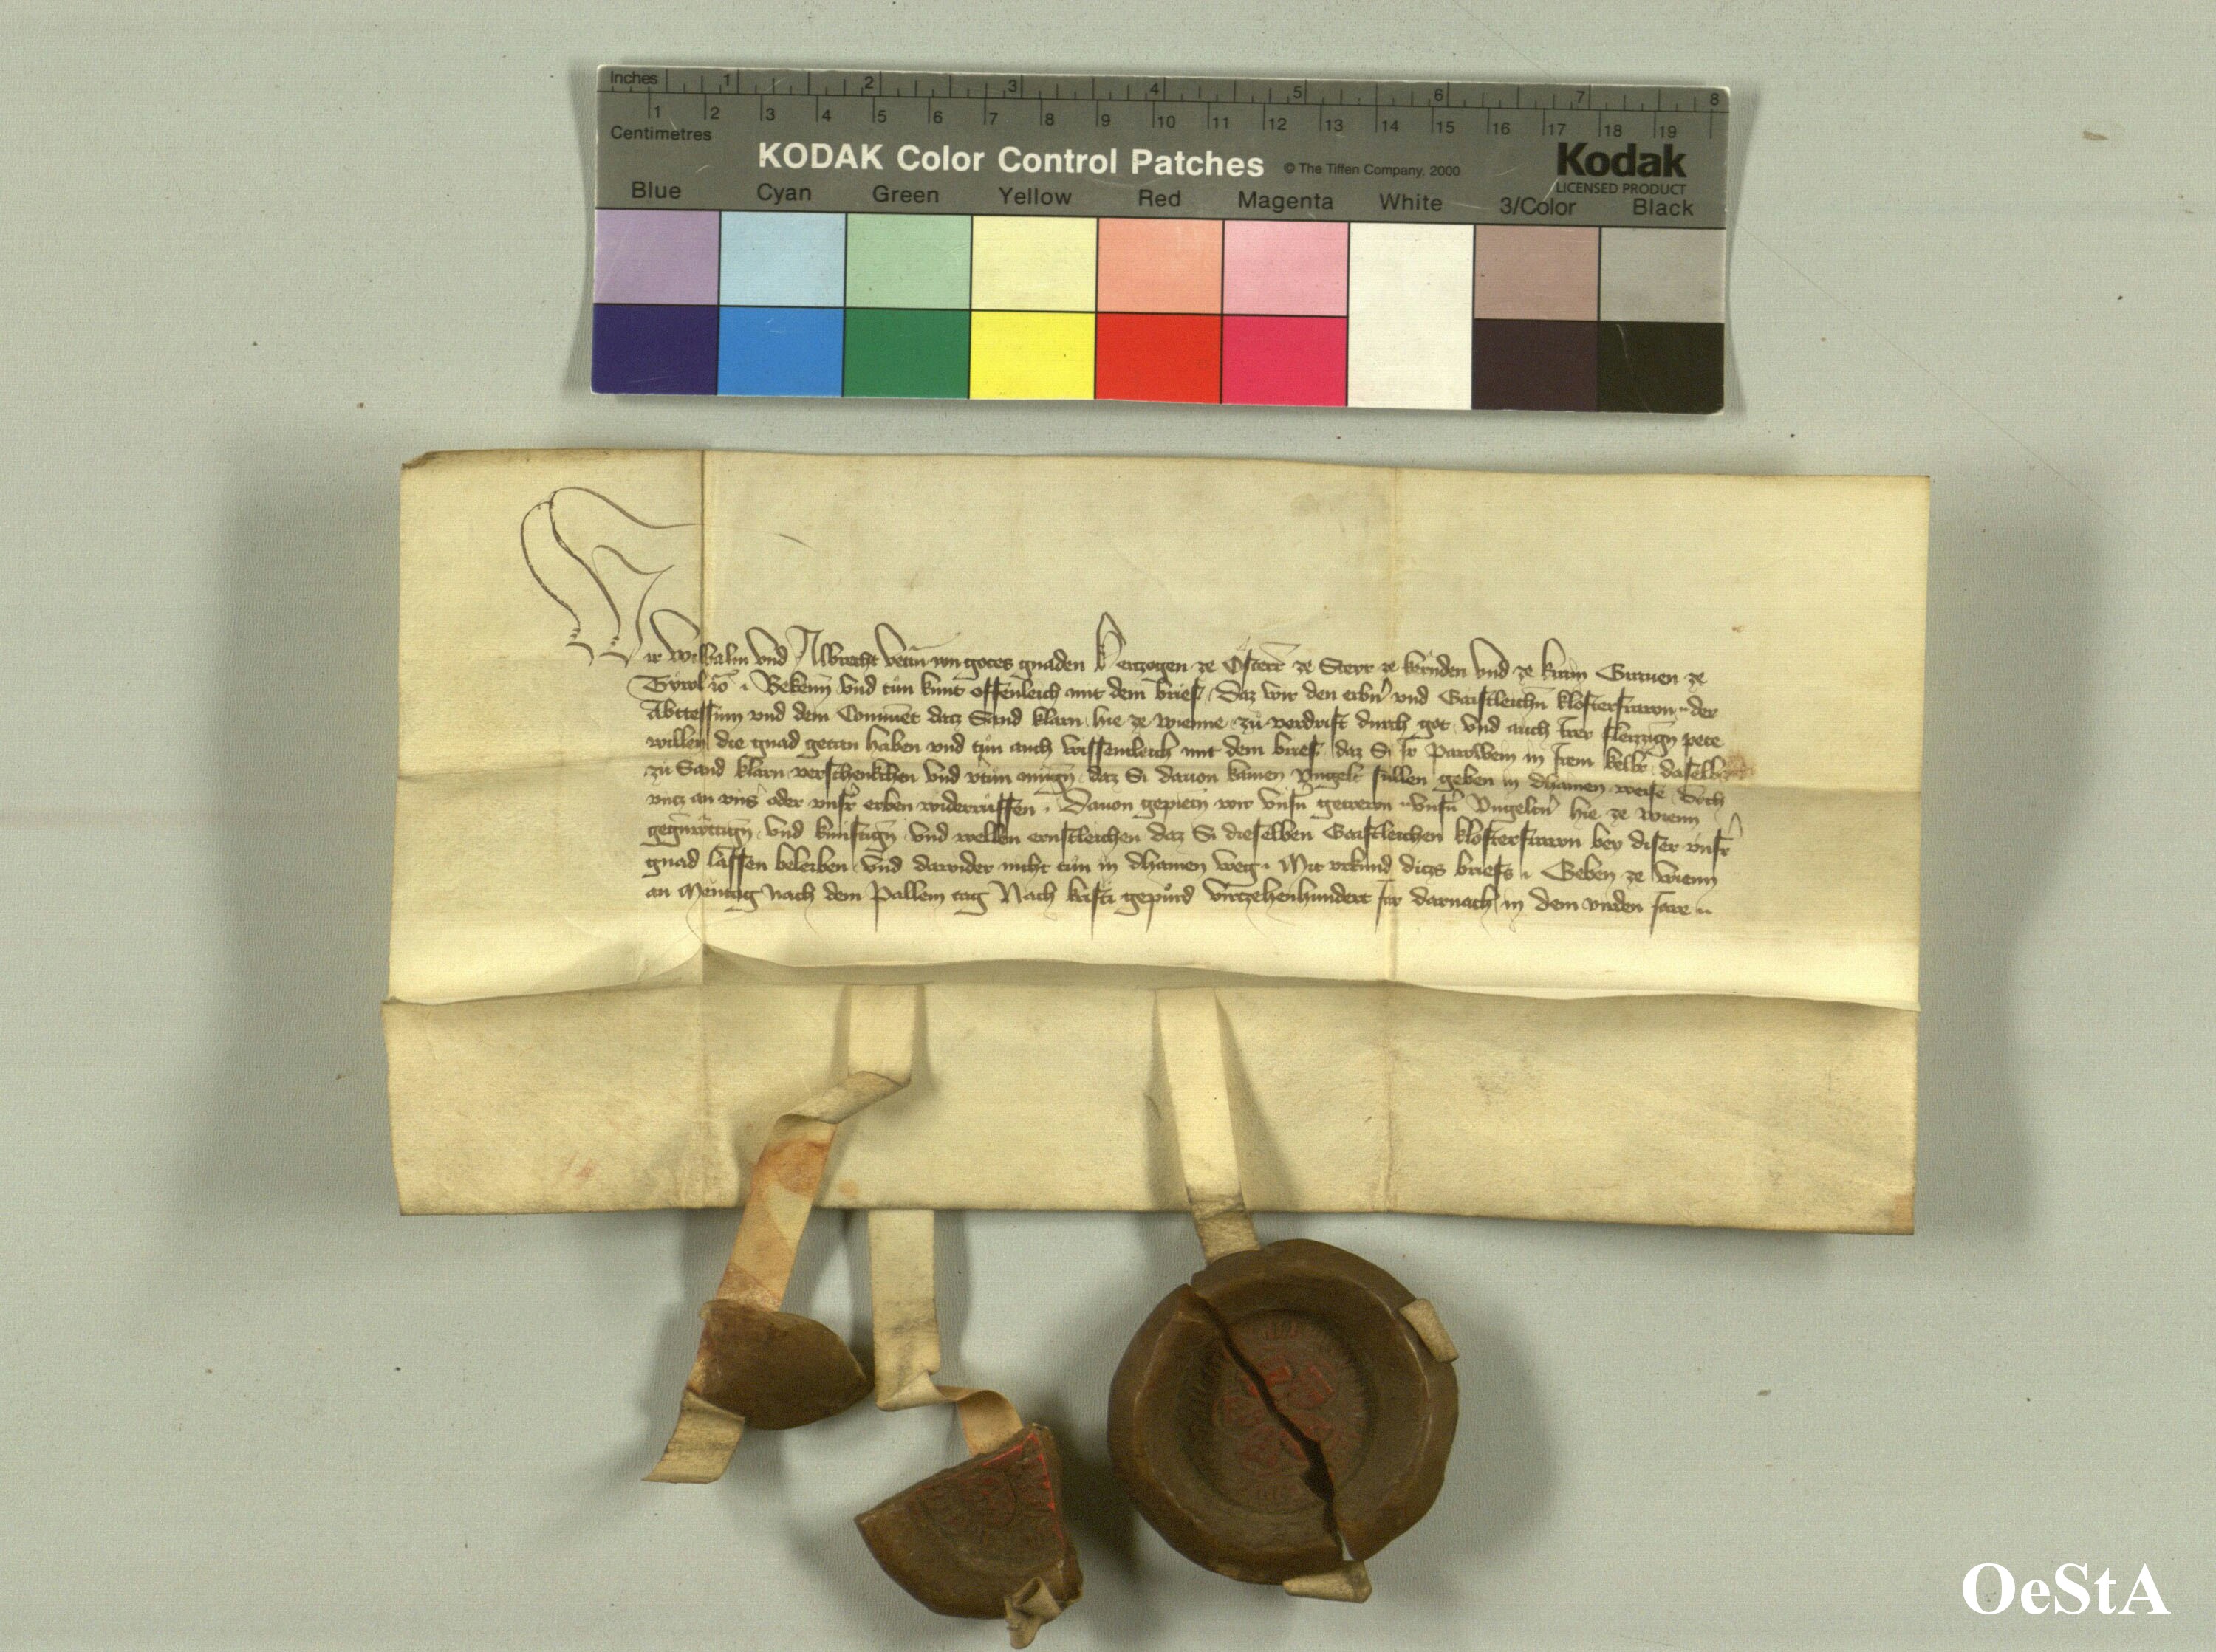 Inches 1 2 3 4 5 6 7 8
1 2 3 4 5 6 7 8 9 10 11 12 13 14 15 16 17 18 19
Centimetres
KODAK Color Control Patches © The Tiffen Company, 2000 Kodak
LICENSED PRODUCT
Blue Cyan Green Yellow Red Magenta White 3/Color Black
Wir Wilhalm vnd Albrecht von gotes gnaden Herczogen ze Österr ze Steyr ze kernden vnd ze krain Grauen ze
Tyrol Bekenn vnd tůn kunt offenleich mit dem brief Daz wir den erbn vnd Gaistleichn klosterfrawn der
Abttessinn vnd dem Conuent dacz Sand klarn hie ze wienne zu vordrist durch got vnd auch irer fleizzign pete
willen die gnad getan haben vnd tůn auch wissentleich mit dem brief daz Si ir Pawwein in irem keller daselbs
zu Sand klarn verschenkchen vnd vertůn mugn daz Si dauon kainen Vngelt sullen geben in dhainen weise doch
vncz an vns oder vnsr erben widerruffen Dauon gepietn wir vnsn getrewn vnsn Vngeltn hie ze wienn
gegnwurttign vnd kunftign vnd wellen ernstleichen daz Si dieselben Gaistleichen klosterfrawn bey diser vnsr
gnad lassen beleiben vnd dawider nicht tůn in dhainen weg Mit vrkund diczs briefs Geben ze wienn
an Mentag Nach dem Pallem tag Nach kristi gepurd virczehenhundert jar darnach in dem virden jare
OeStA